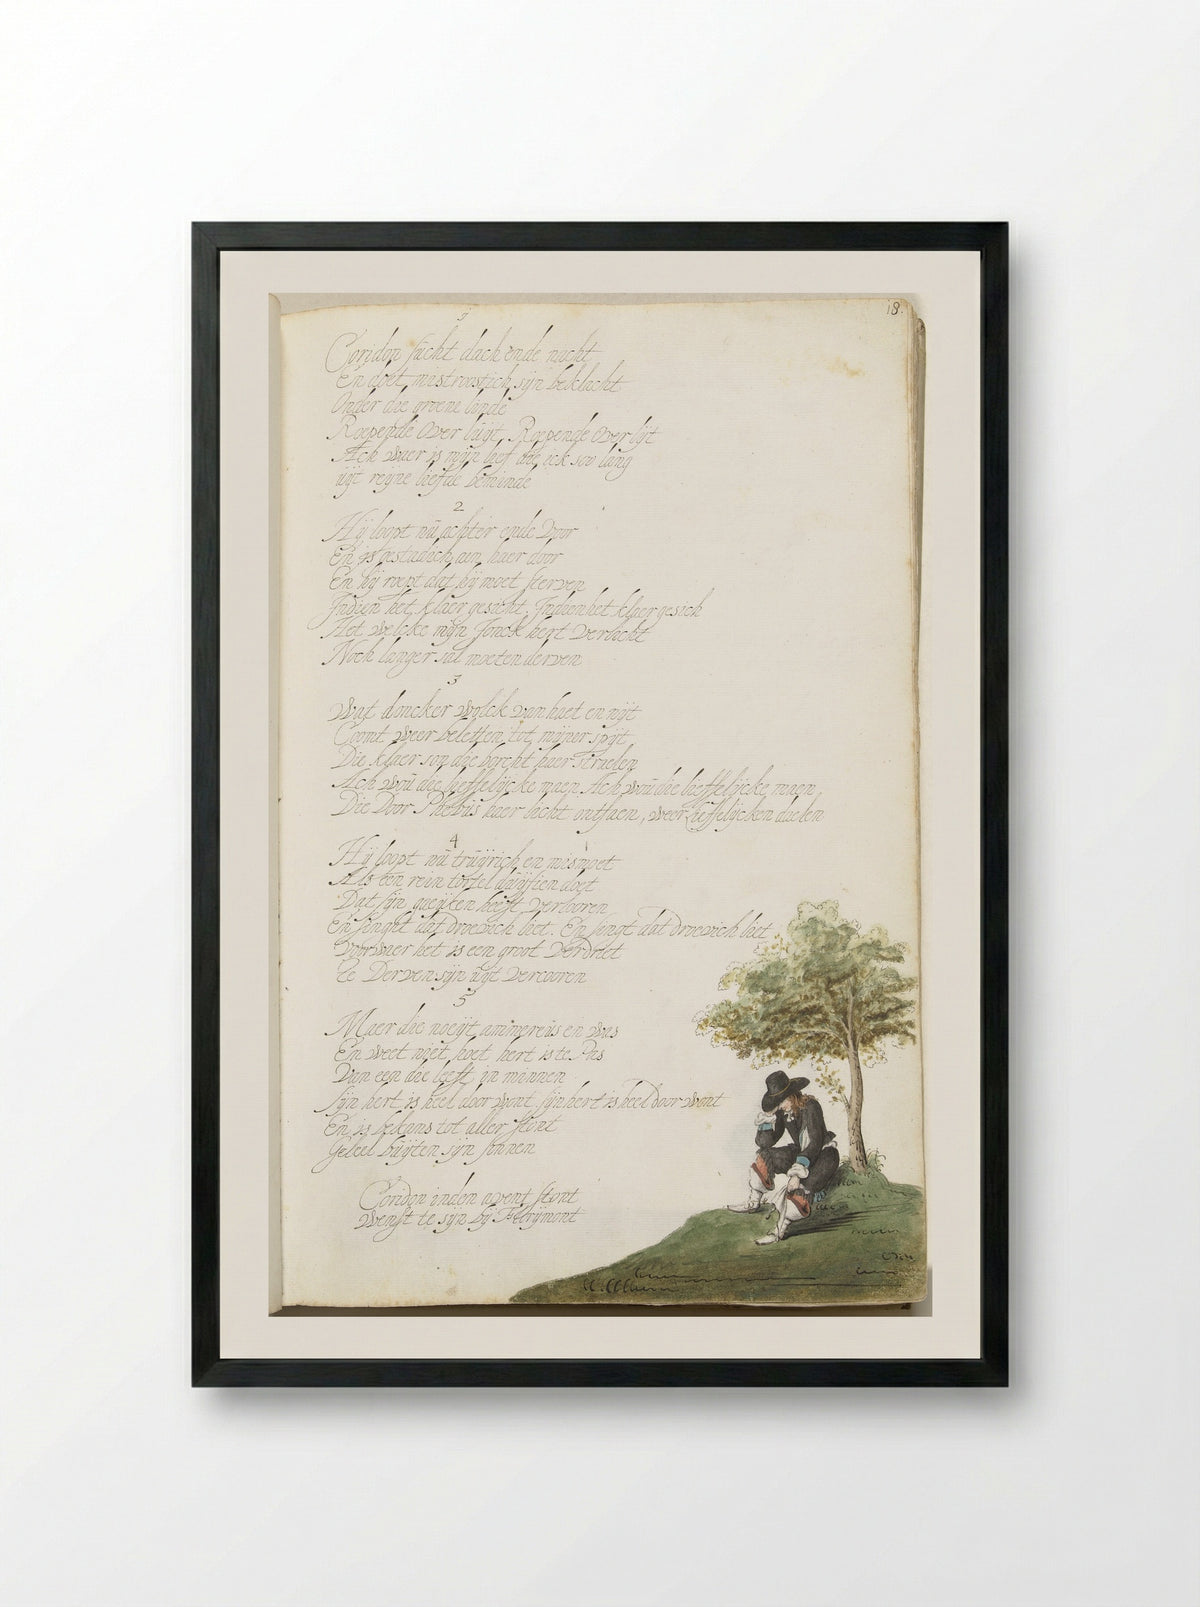 18.
1
Coridon sucht dach ende nacht
En doet mistroostich sijn beklacht
Onder die groene linde
Roepende Over luijt, Roepende Over lijt
Ach waer is mijn leef die ick soo lang
uijt reijne liefde beminde
2
Hij loopt nú achter ende voor
En is gestadich aen haer door
En hij roept dat hij moet sterven
Indien het klaer gesicht. Indien het klaer gesich
Het welcke mijn Jonck hert verlocht
Noch langer sal moeten derven
3
Wat doncker wolck van haet en nijt
Coomt weer beletten tot mijner spijt
Die klaer son die borcht haer straelen
Ach wou die lieffelijcke maen Ach wou die lieffelijcke maen
Die Door Phebus haer licht ontfaen, weer Lieffelijcken daelen
4
Hij loopt nú trúijrich en mismoet
Als een rein tortel duijfien doet
Dat sijn gaeijken heeft verlooren
En singht dat droevich liet. En singt dat droevich liet
Voorwaer het is een groot verdriet
Te Derven sijn uijt vercooren
5
Maer die noeijt aminereús en was
En weet niet hoet hert is te Pas
Van een die leeft in minnen
Sijn hert is heel door wont sijn hert is heel door wont
En is bekans tot aller stont
Geleel búijten sijn sinnen
Coridon inden avent stont
Wenst te sijn bij